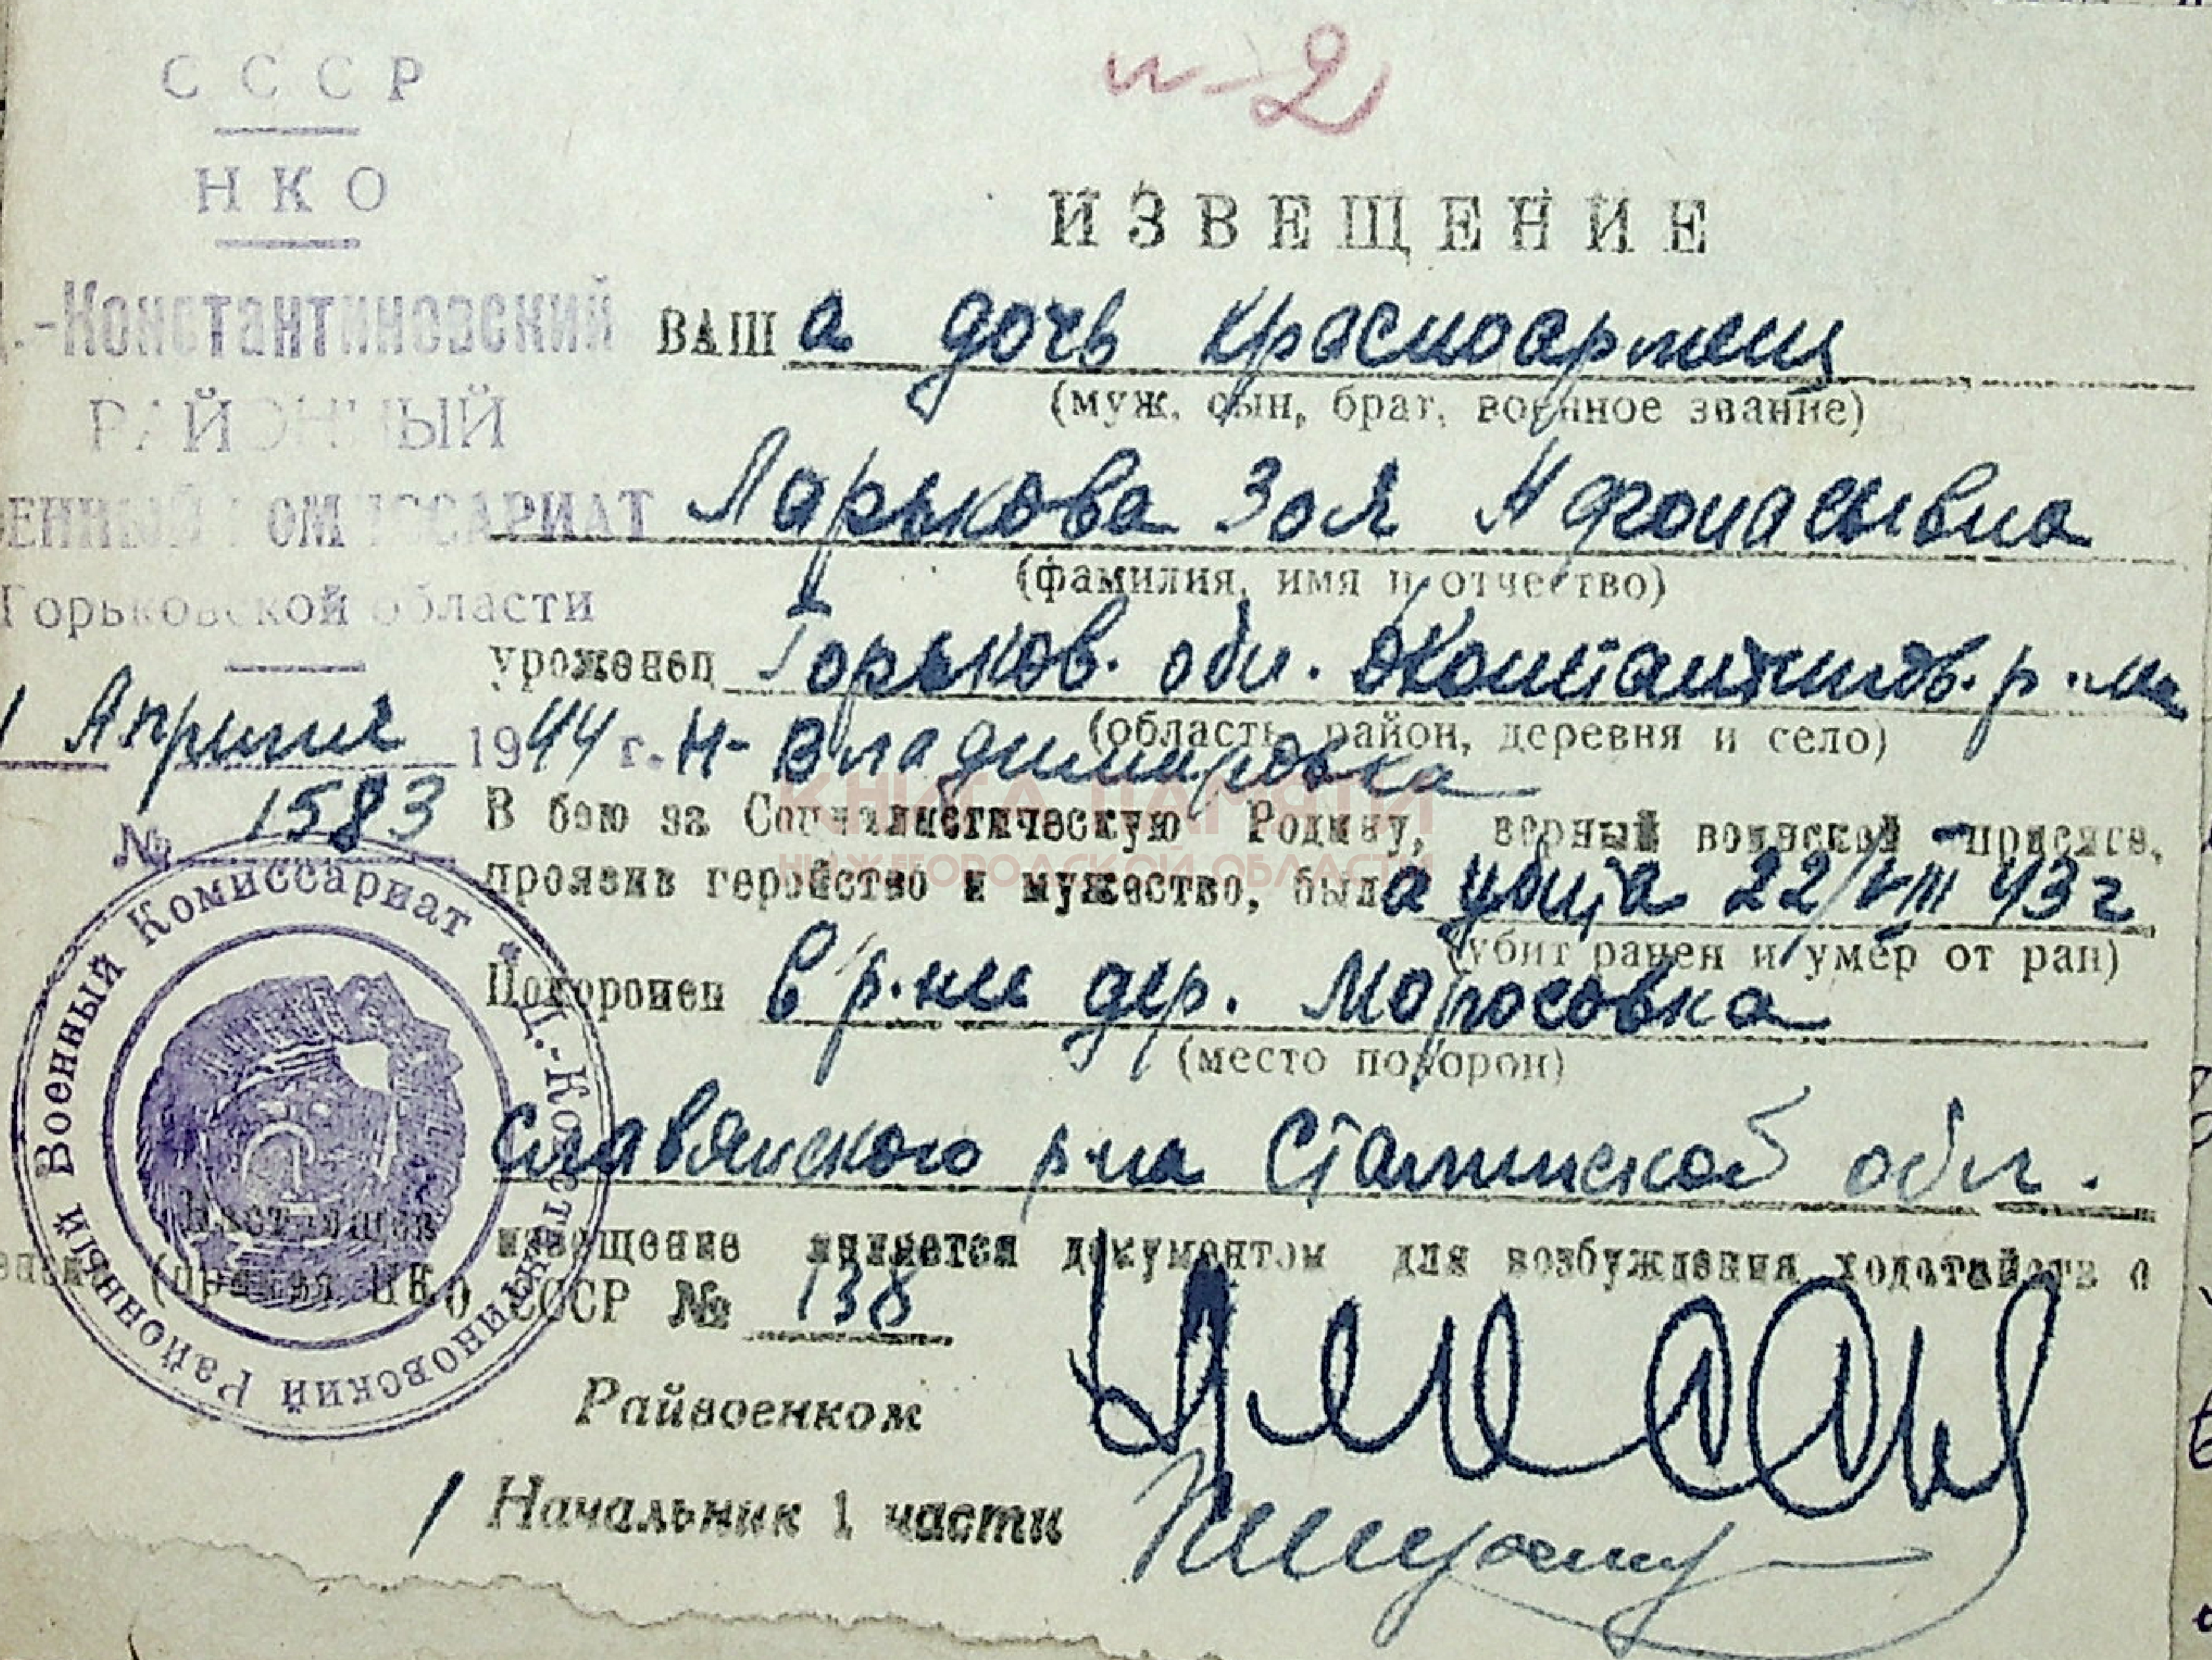 и-2
СССР
НКО
.-Константиновский
РАЙОННЫЙ
ЕННЫЙ КОМИССАРИАТ
Горьковской области
1 Апреля 1944 г.
№ 1583
ИЗВЕЩЕНИЕ
ВАШа дочь красноармеец
(муж, сын, брат, военное звание)
Ларькова Зоя Афонасьевна
(фамилия, имя и отчество)
уроженец Горьков. обл. Константинов. р-на
(область, район, деревня и село)
Н-Владимировка
В бою за Социалистическую Родину, верный воинской присяге,
проявив геройство и мужество, была убита 22/VIII 43 г
(убит ранен и умер от ран)
Похоронен в р-не дер. Моросовка
(место похорон)
Славянского р-на Сталинской обл.
Настоящее извещение является документом для возбуждения ходатайств о
(приказ НКО СССР № 138
Райвоенком
Начальник 1 части
Военный Комиссариат * Д.-Константиновский Районный
КНИГА ПАМЯТИ
НИЖЕГОРОДСКОЙ ОБЛАСТИ